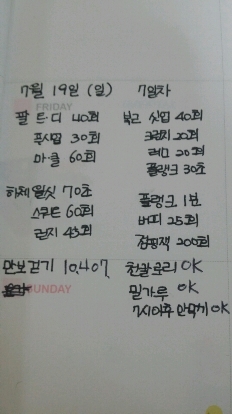 7월 19일 (일) 7일차
FRIDAY
팔 트·디 40회
푸시업 30회
마·클 60회
하체 월싯 70초
스쿼트 60회
런지 45회
만보걷기 10,407
SUNDAY
복근 싯업 40회
크런치 20회
레그 20회
플랭크 30초
플랭크 1분
버피 25회
점핑잭 200회
천칼로리 OK
밀가루 OK
7시이후 안먹기 OK